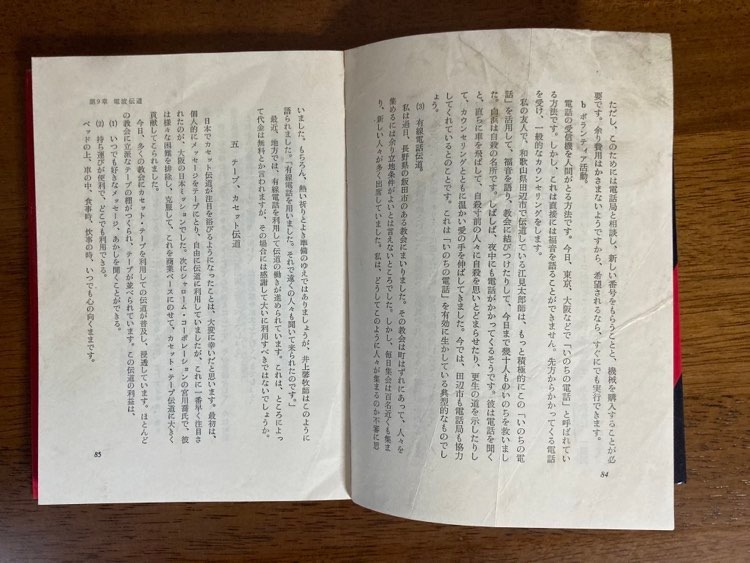 ただし、このためには電話局と相談し、新しい番号をもらうことと、機械を購入することが必
要です。余り費用はかさまないようですから、希望されるなら、すぐにでも実行できます。
b ボランティア活動。
電話の受信機を人間がとる方法です。今日、東京、大阪などで「いのちの電話」と呼ばれてい
る方法です。しかし、これは直接には福音を語ることができません。先方からかかってくる電話
を受け、一般的なカウンセリングをします。
私の友人で、和歌山県田辺市で伝道している江見太郎師は、もっと積極的にこの「いのちの電
話」を活用して、福音を語り、教会に結びつけたりして、今日まで幾十人ものいのちを救いまし
た。白浜は自殺の名所です。しばしば、夜中にも電話がかかってくるそうです。彼は電話を聞く
と、直ちに車を飛ばして、自殺寸前の人々に自殺を思いとどまらせたり、更生の道を示したりし
て、カウンセリングとともに温かい愛の手を伸ばしてきました。今では、田辺市も電話局も協力
してくれているとのことです。これは「いのちの電話」を有効に生かしている典型的なものでし
ょう。
(3) 有線電話伝道。
私は過日、長野県の飯田市のある教会にまいりました。その教会は町はずれにあって、人々を
集めるには余り立地条件がよいとは言えないところでした。しかし、毎日集会は百名近くも集ま
り、新しい人々が多く出席していました。私は、どうしてこのように人々が集まるのか不審に思
84
いました。もちろん、熱い祈りとよき準備のゆえではありましょうが、井上馨牧師はこのように
語られました。「有線電話を用いました。それで遠くの人々も聞いて来られたのです。」
最近、地方では、有線電話を利用して伝道の働きが進められています。これは、ところによっ
て代金は無料とか言われますが、その場合には感謝して大いに利用すべきではないでしょうか。
五 テープ、カセット伝道
日本でカセット伝道が注目を浴びるようになったことは、大変に幸いだと思います。最初は、
個人的にメッセージをテープにとり、自由に伝道に利用していましたが、これに一番早く注目さ
れたのが、大阪の日本ミッションでした。次にシャローム・コーポレーションの宮川師氏で、彼
は様々な困難を排除し、克服して、これを商業ベースにのせて、カセット・テープ伝道に大きく
貢献してこられました。
今日、多くの教会にカセット・テープを利用しての伝道が普及し、浸透しています。ほとんど
の教会に立派なテープの棚がつくられ、テープが並べられています。この伝道の利益は、
(1) いつでも好きなメッセージ、あかしを聞くことができる。
(2) 持ち運びが便利で、どこでも利用できる。
ベッドの上、車の中、食事時、炊事の時、いつでも心の向くままです。
第9章 電波伝道
85